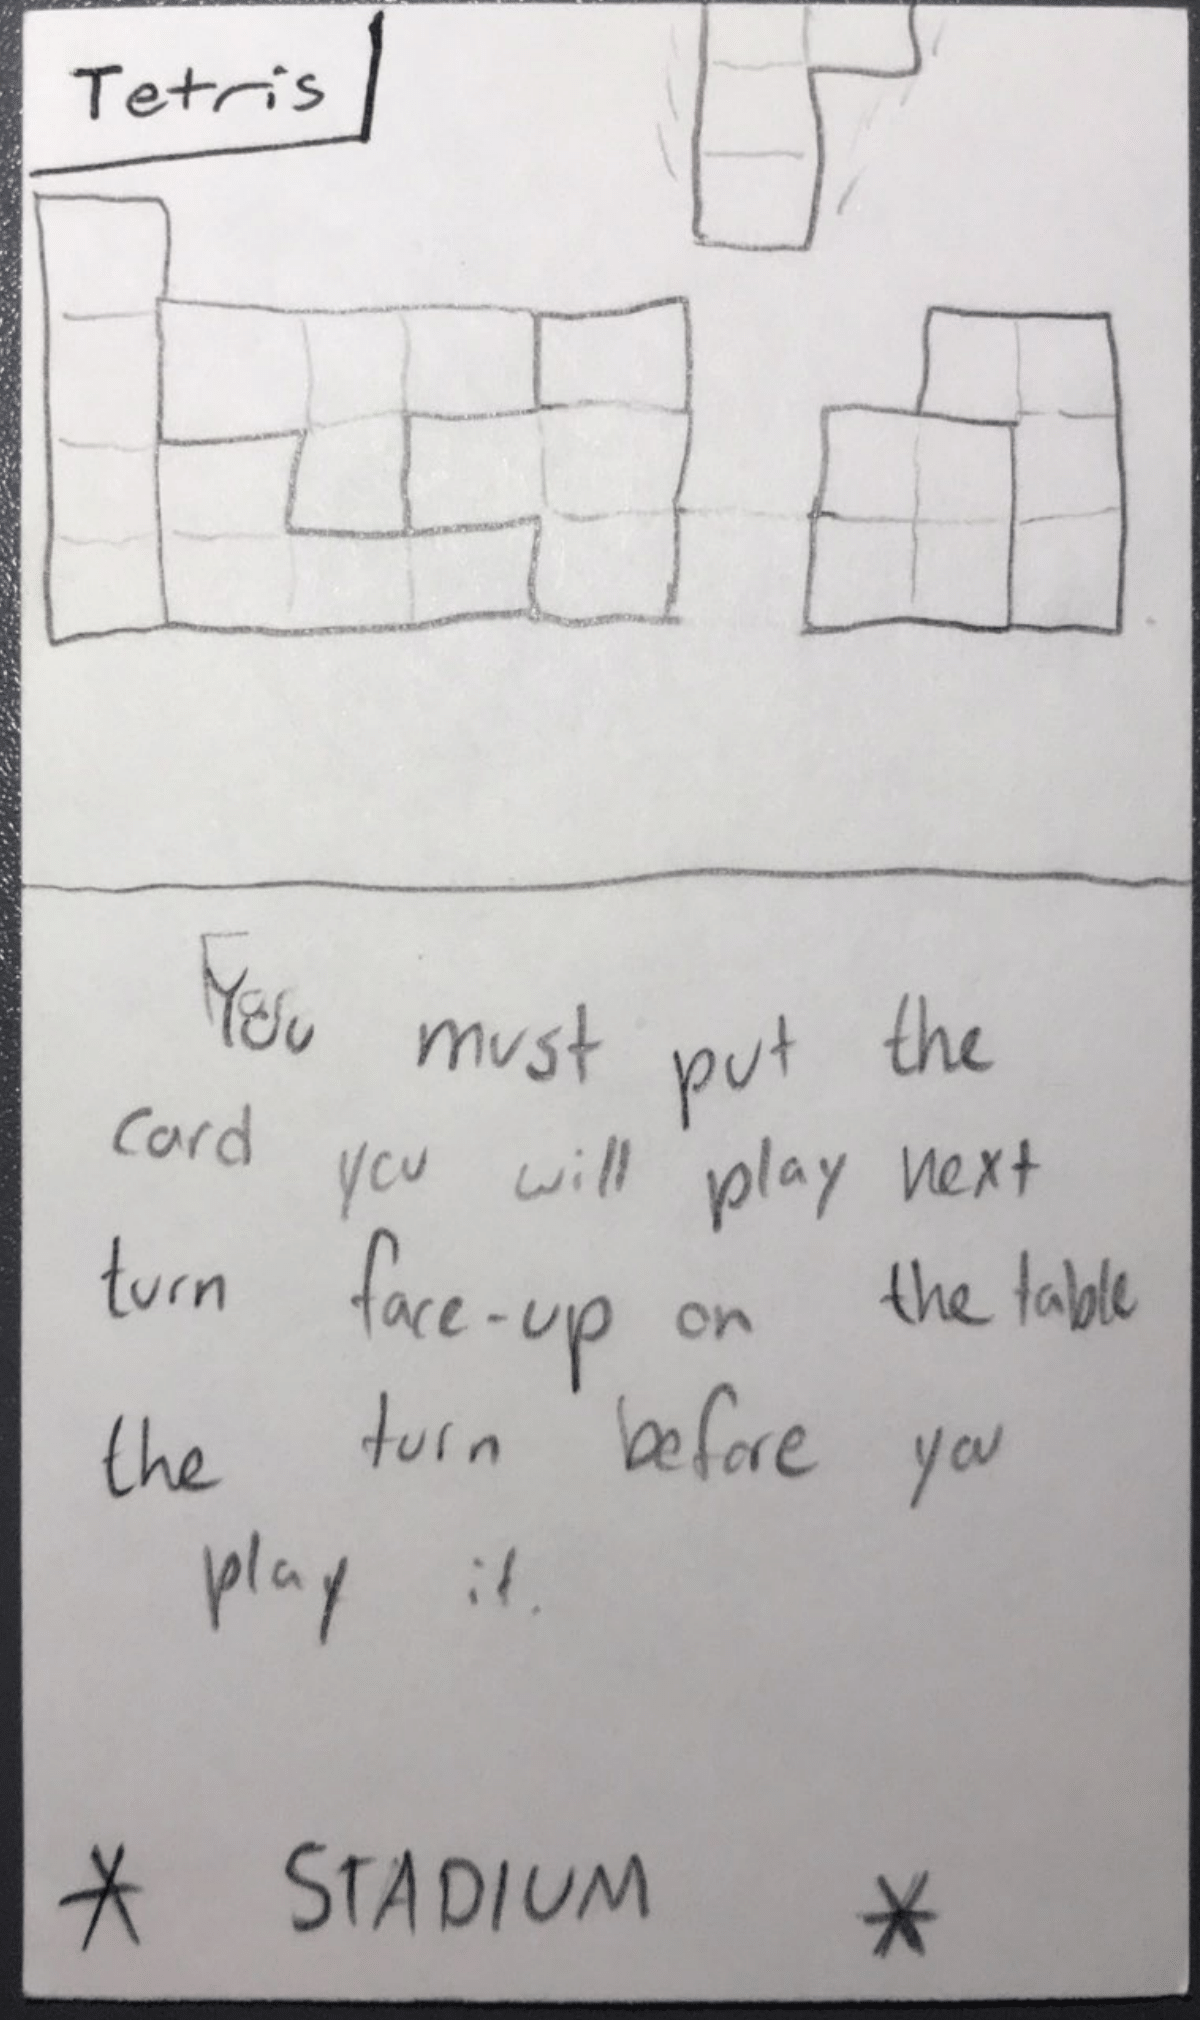 Tetris
You must put the
card you will play next
turn face-up on the table
the turn before you
play it.
* STADIUM *